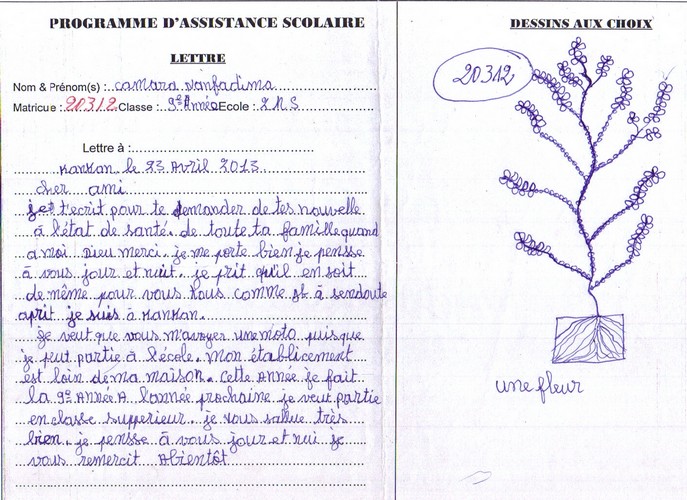 PROGRAMME D'ASSISTANCE SCOLAIRE
LETTRE
Nom & Prénom(s) : camara vanfadima
Matricue : 20312 Classe : 9è Année Ecole : 2 N S
Lettre à :
Kankan le 23 Avril 2013
cher ami
je t'ecrit pour te demander de tes nouvelle
à l'état de santé. de toute ta famille quand
a moi Dieu merci. je me porte bien je pensse
à vous jour et nuit. je prit qu'il en soit
de même pour vous tous comme à sendoute
aprit je suis à Kankan.
je veut que vous m'avoyer une moto puisque
je peut partie à l'école. Mon établicement
est loin de ma maison. cette Année je fait
la 9è ANNÉE A l'année prochaine je veut partie
en classe supperieur. je vous sallue très
bien. je pensse à vous jour et nui je
vous remercit Abientôt
DESSINS AUX CHOIX
20312
une fleur